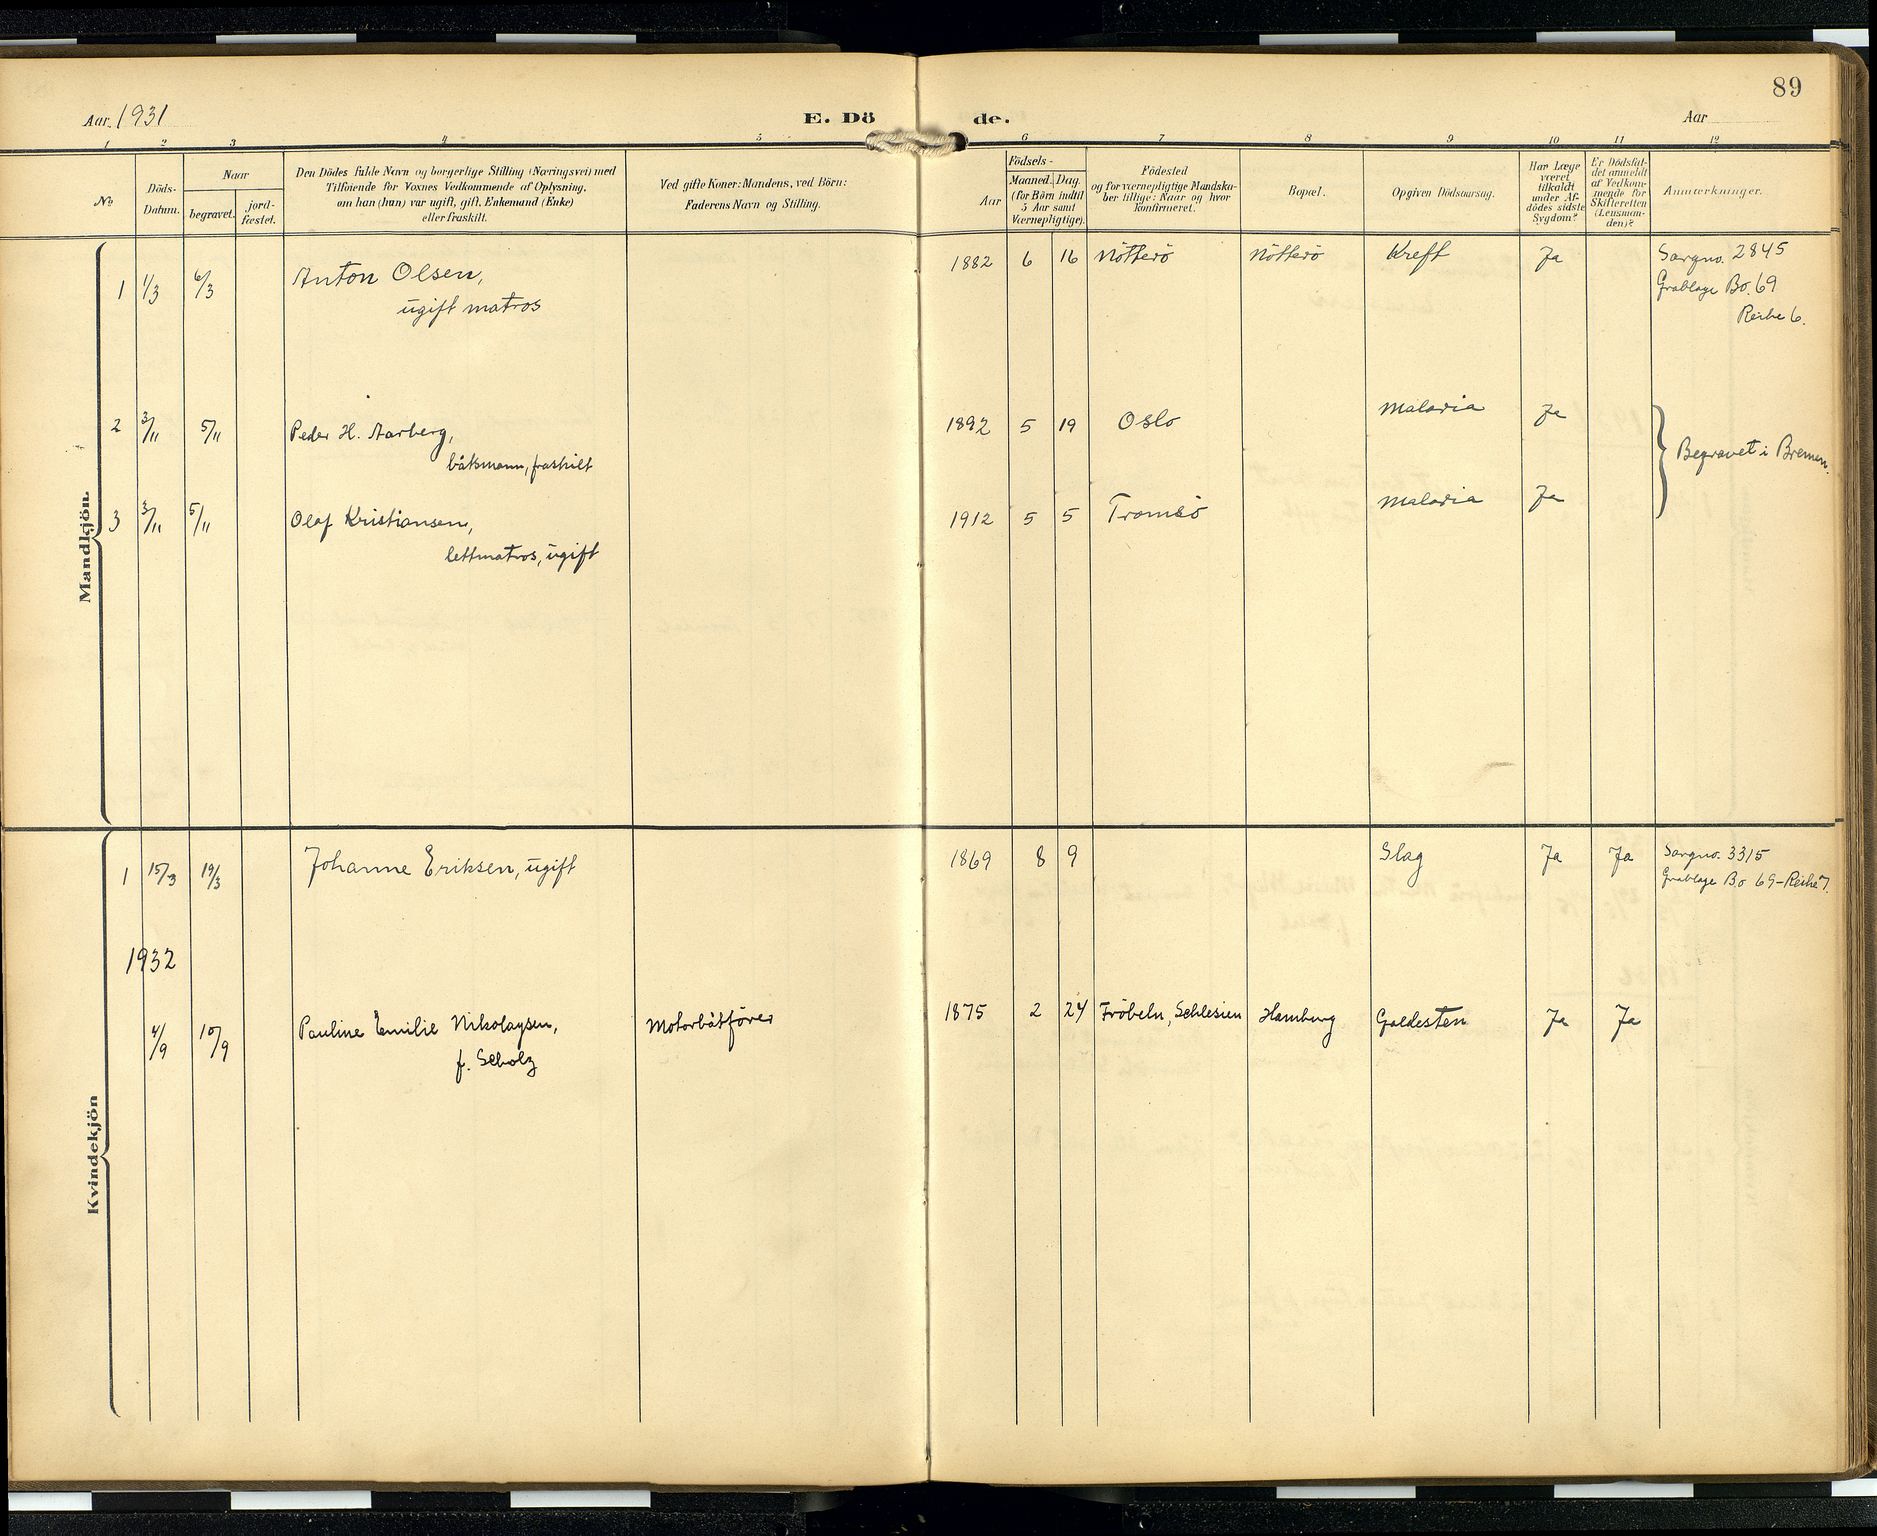 89
Aar 1931
E. Döde.
Aar
1 2 3 4 5 6 7 8 9 10 11 12
No
Döds-
Datum.
Naar
begravet.
jord-
fæstet.
Den Dödes fulde Navn og borgerlige Stilling (Næringsvei) med
Tilföiende for Voxnes Vedkommende af Oplysning,
om han (hun) var ugift, gift, Enkemand (Enke)
eller fraskilt.
Ved gifte Koner: Mandens, ved Börn:
Faderens Navn og Stilling.
Födsels-
Aar
Maaned. Dag.
(for Börn indtil
5 Aar samt
Værnepligtige).
Födested
og for værnepligtige Mandska-
ber tillige: Naar og hvor
konfirmeret.
Bopæl.
Opgiven Dödsaarsag.
Har Læge
været
tilkaldt
under Af-
dödes sidste
Sygdom?
Er Dödsfal-
det anmeldt
af Vedkom-
mende for
Skifteretten
(Lensman-
den)?
Anmærkninger.
Mandkjön.
1 1/3 6/3 Anton Olsen, 1882 6 16 Nötterö Nötterö Kreft Ja Sargno. 2845
ugift matros Grablage Bo. 69
Reihe 6.
2 3/11 5/11 Peder H. Aarberg, 1892 5 19 Oslo Malaria Ja
båtsmann, fraskilt Begravet i Bremen.
3 3/11 5/11 Olaf Kristiansen, 1912 5 5 Tromsö Malaria Ja
lettmatros, ugift
Kvindekjön
1 15/3 19/3 Johanne Eriksen, ugift 1869 8 9 Slag Ja Ja Sargno. 3315
Grablage Bo 69-Reihe 7.
1932
4/9 10/9 Pauline Emilie Nikolaysen, Motorbåtförer 1875 2 24 Fröbeln, Schlesien Hamburg Galdesten Ja Ja
f. Scholz